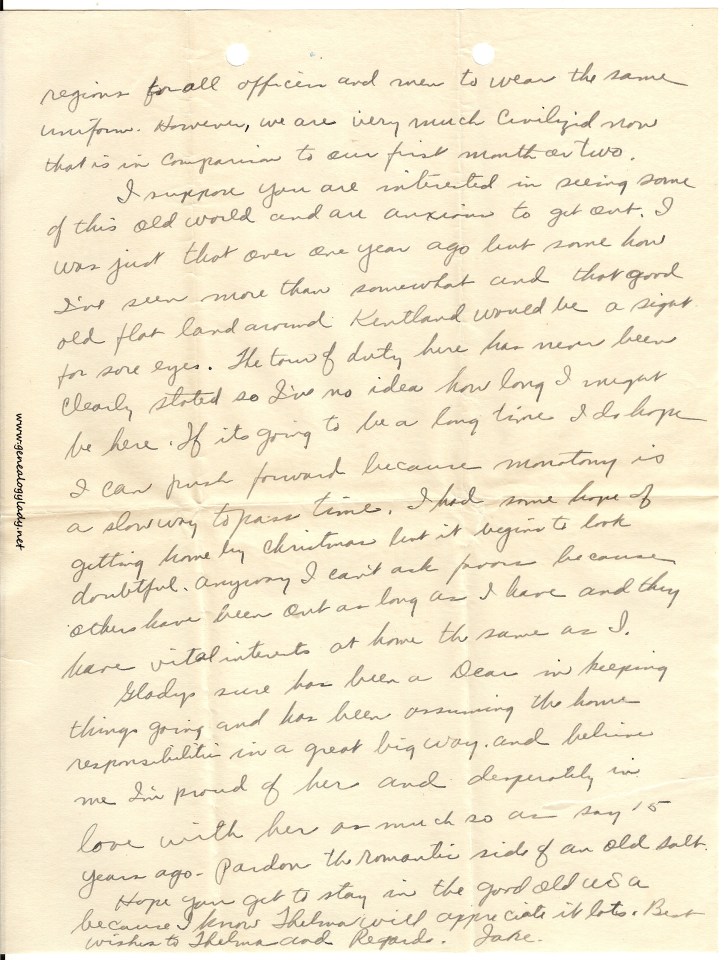 regions for all officers and men to wear the same
uniform. However, we are very much Civilizid now
that is in Comparison to our first month or two.
I suppose you are interested in seeing some
of this old world and are anxious to get out. I
was just that over one year ago but some how
I've seen more than somewhat and that good
old flat land around Kentland would be a sight
for sore eyes. The tour of duty here has never been
clearly stated so I've no idea how long I might
be here. If its going to be a long time I do hope
I can push forward because monotony is
a slow way to pass time. I had some hope of
getting home by Christmas but it begins to look
doubtful. Anyway I can't ask favors because
others have been out as long as I have and they
have vital interests at home the same as I.
Gladys sure has been a Dear in keeping
things going and has been assuming the home
responsibilities in a great big way. and believe
me I'm proud of her and desperately in
love with her as much so as say 15
years ago - Pardon the romantic side of an old salt.
Hope you get to stay in the good old USA
because I know Thelma will appreciate it lots. Best
wishes to Thelma and Regards. Jake.
www.genealogylady.net